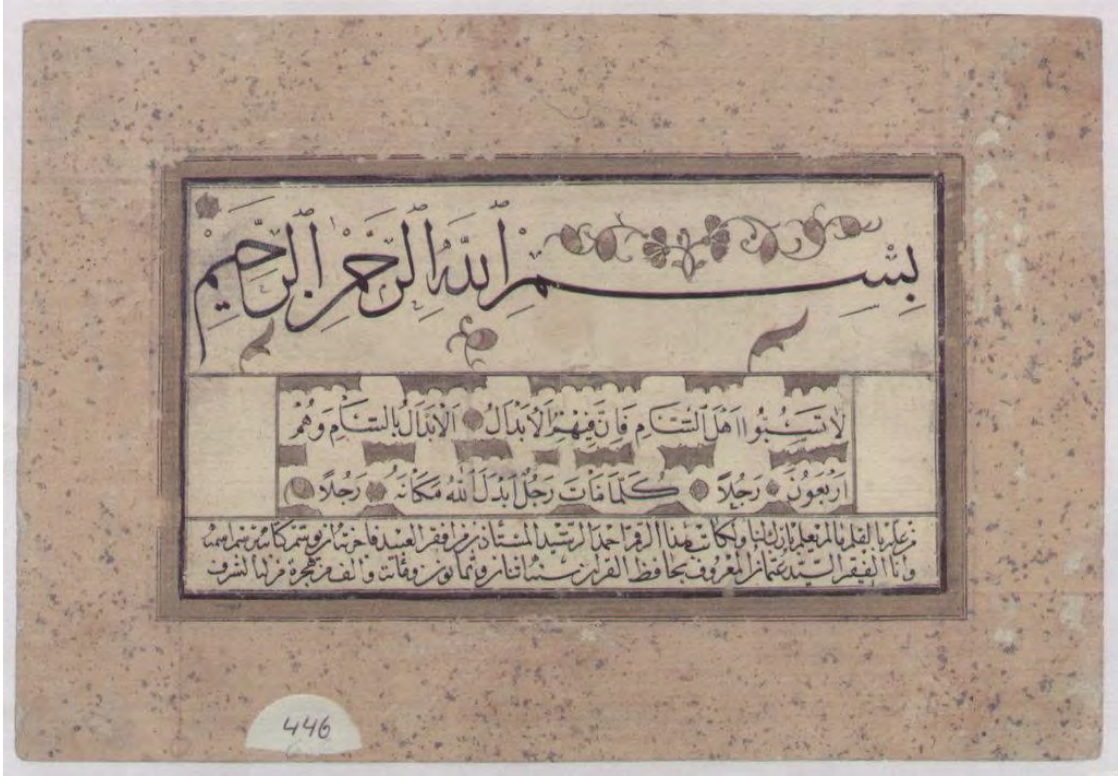 بِسْمِ اللَّهِ الرَّحْمٰنِ الرَّحِيمِ
لَا تَسُبُّوا اَهْلَ الشَّامِ فَاِنَّ فِيْهِمُ الْاَبْدَالُ اَلْاَبْدَالُ بِالشَّامِ وَهُمْ
اَرْبَعُونَ رَجُلًا كُلَّمَا مَاتَ رَجُلٌ اَبْدَلَ اللّٰهُ مَكَانَهُ رَجُلًا
بالقلم يا لم يعلم لكاتب هذا الرقم احمد الرشيد المستاذن من افقر العبيد
وانا الفقير السيد عثمان المعروف بحافظ القران سنة اثنان وثمانون ومائت والف من هجرة من له الشرف
446